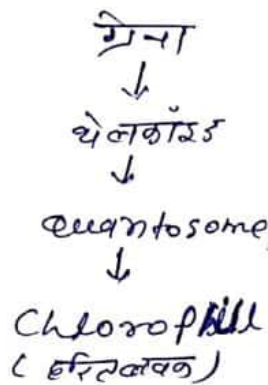 ग्रेना
↓
थेलकॉइड
↓
Quantosome
↓
Chlorophill
(हरितलवक)